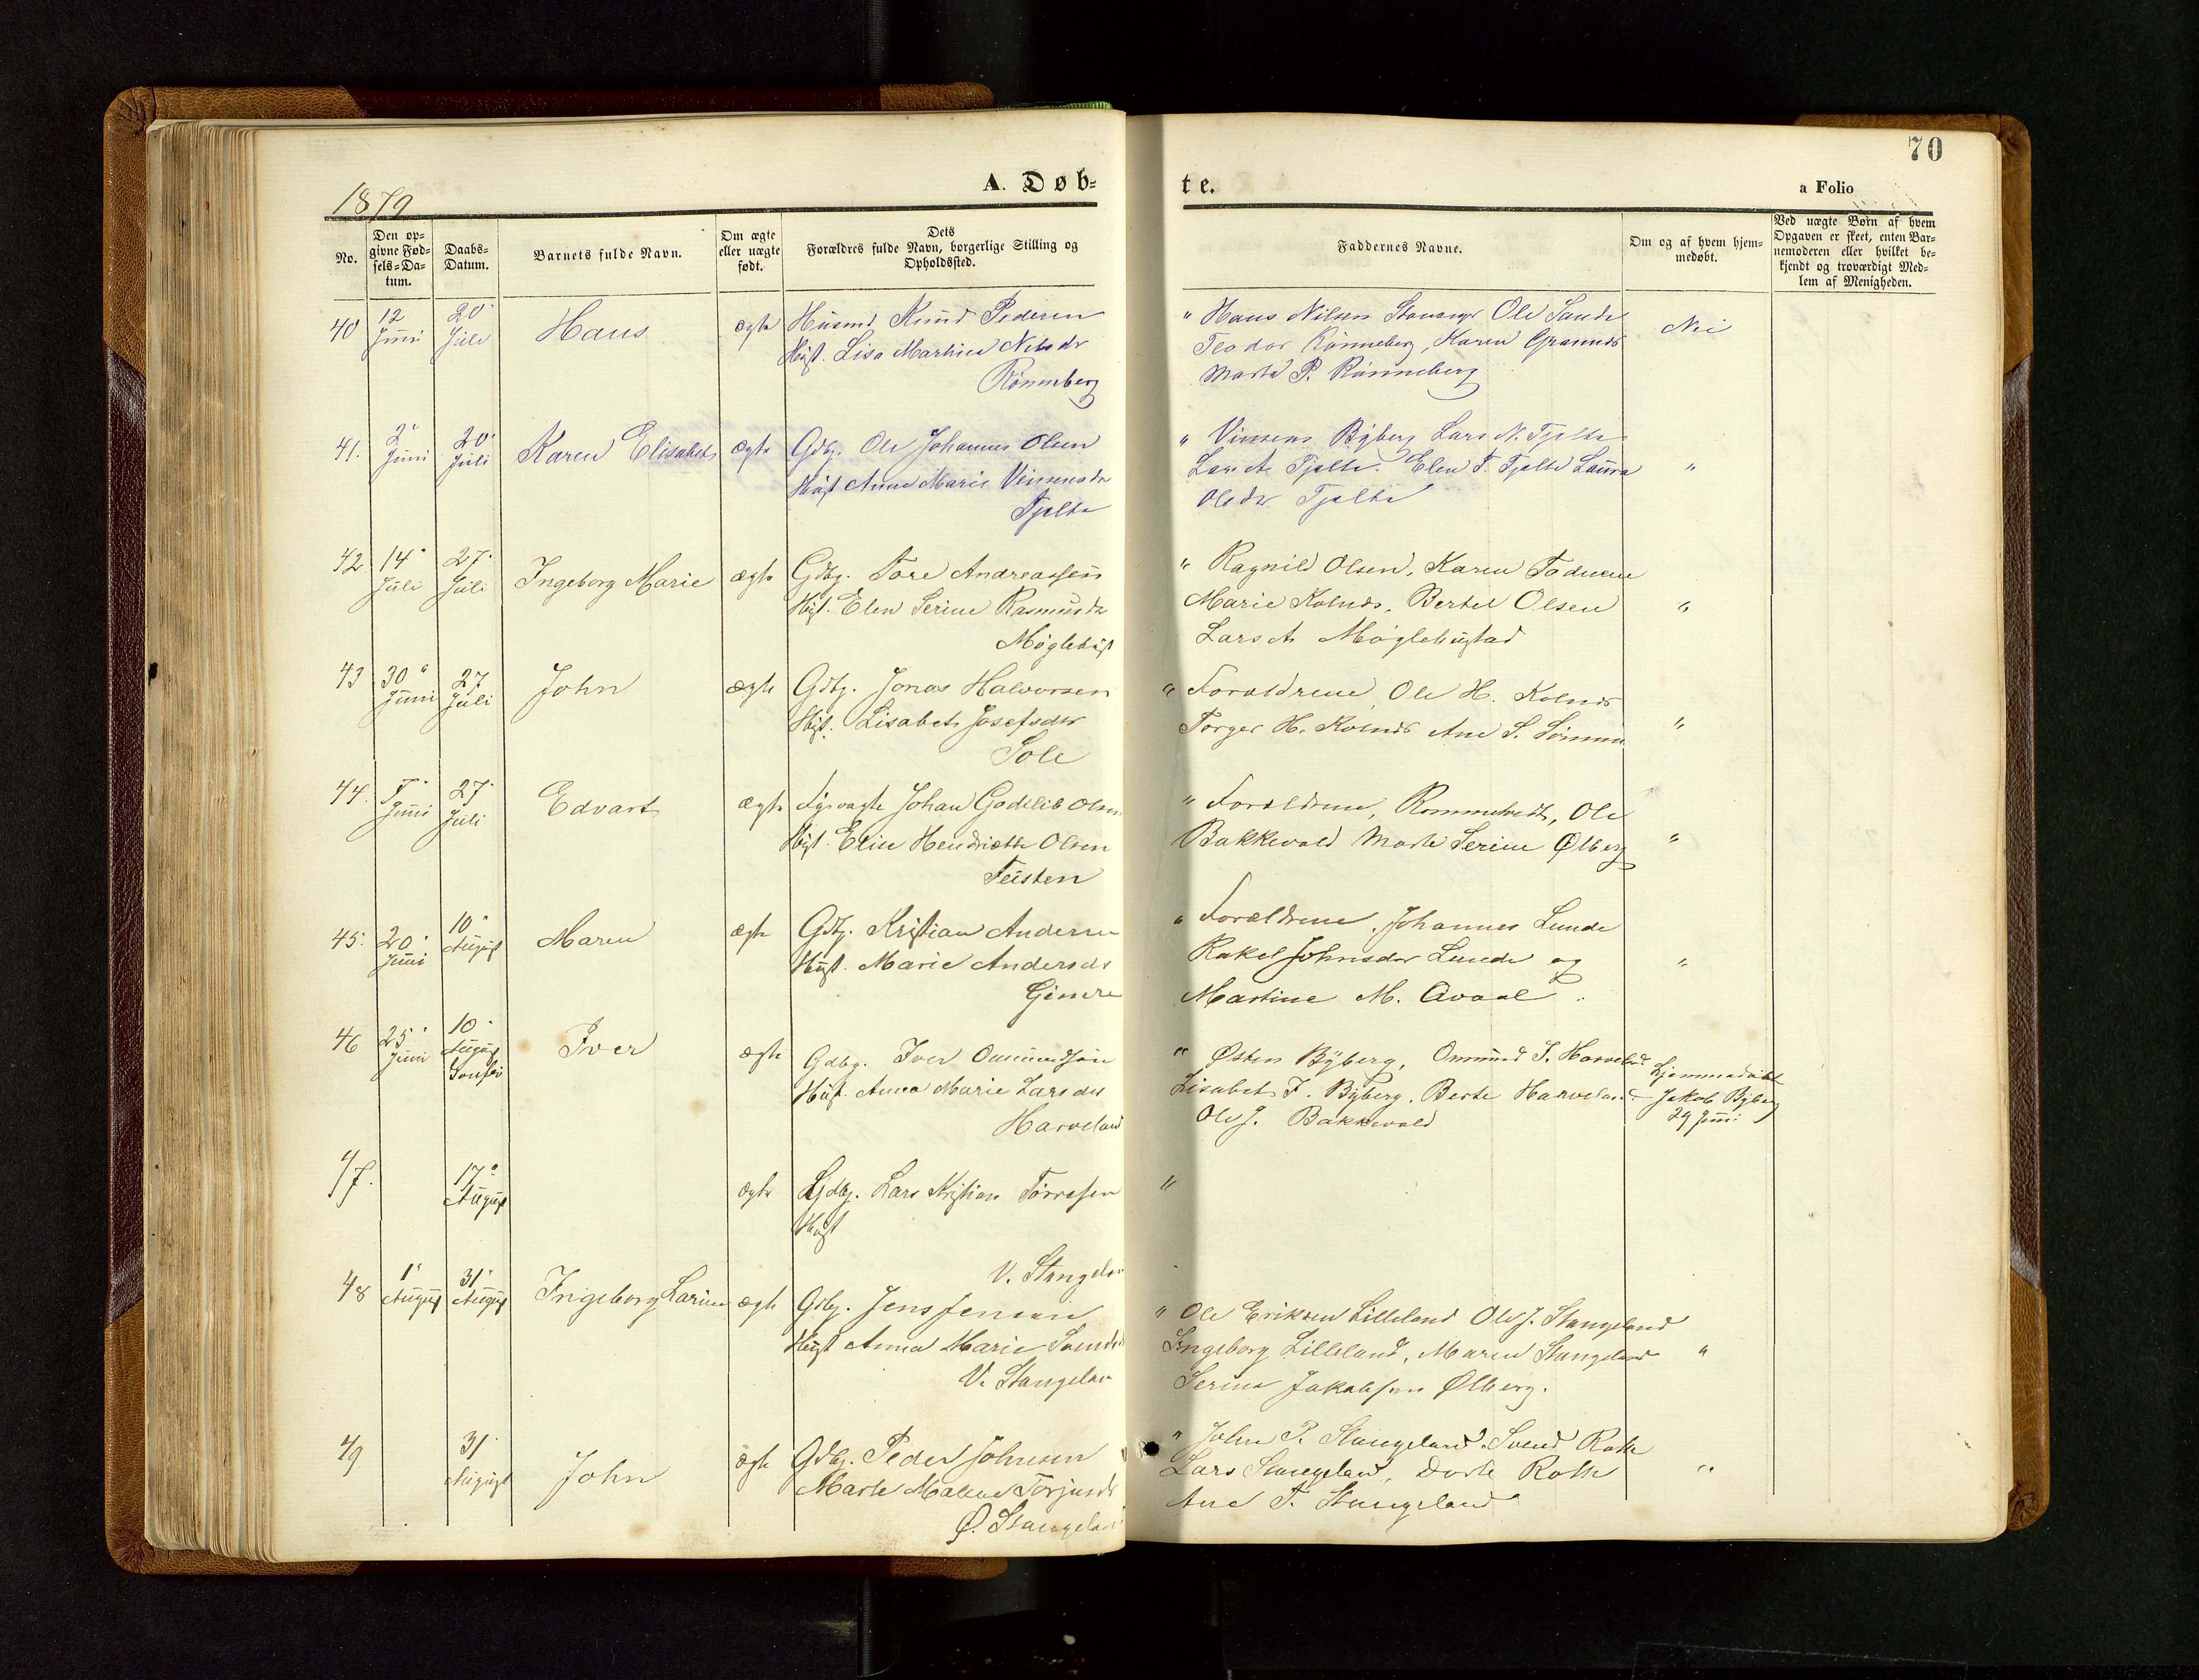 70
1879
A. Døb-
te.
a Folio
No.
Den op-
givne Fød-
sels-Da-
tum.
Daabs-
Datum.
Barnets fulde Navn.
Om ægte
eller uægte
født.
Dets
Forældres fulde Navn, borgerlige Stilling og
Opholdssted.
Faddernes Navne.
Om og af hvem hjem-
medøbt.
Ved uægte Børn af hvem
Opgaven er skeet, enten Bar-
nemoderen eller hvilket be-
kjendt og troværdigt Med-
lem af Menigheden.
40
12
Juni
20
Juli
Hans
ægte
Husmd Knud Pedersen
Hust. Lisa Martina Nilsdr
Rönneberg
" Hans Nilsen Stavanger Ole Sande
Teodor Rönneberg, Karen Grannes
Marta P. Rönneberg
Nei
41.
2
Juni
20
Juli
Karen Elisabet
ægte
Gdbg. Ole Johannes Olsen
Hust Anne Marie Vinsensdr
Tjelta
" Vinsens Byberg Lars N. Tjelta
Lars A. Tjelta. Elen T. Tjelta Laura
Olsdr Tjelta
"
42.
14
Juli
27
Juli
Ingeborg Marie
ægte
Gdbg. Tore Andreassen
Hust. Elen Serine Rasmusdr
Möglehust
" Ragnild Olsen, Karen
Marie Kolnes, Bertel Olsen
Lars A. Möglehustad
"
43
30
Juni
27
Juli
John
ægte
Gdbg. Jonas Halvorsen
Hust. Lisabet Josefsdr
Sole
" Foraldrene, Ole H. Kolnes
Torger H. Kolnes Ane S. Sömme
"
44.
Juni
27
Juli
Edvart
ægte
Fyrvagte Johan Godtlib Olsen
Hust. Elise Hendriette Olsen
Feisten
" Forældrene, Rommetvedt, Ole
Bakkevold Marte Serine Ølberg
"
45.
20
Juni
10
August
Maren
ægte
Gdbg. Kristian Andersen
Hust. Marie Andersdr
Gimre
" Forældrene, Johannes Lunde
Rakel Johnsdr Lunde og
Martine M. Qvaal
"
46
25
Juni
10
August
ægte
Iver
Gdbg. Iver Ommundsen
Hust. Anna Marie Larsdr
Harveland
" Østen Byberg, Ommund T. Harveland
Lisabet T. Byberg. Berte Harveland
Ole J. Bakkevold
hjemmedöbt
Jakob Byberg
29 Juni
47.
17
August
ægte
Gdbg. Lars Kristian Törresen
Hust
V. Stangeland
"
48
1
August
31
August
Ingeborg Larine
ægte
Gdbg. Jens Jensen
Hust Anna Marie Svendsd
V. Stangelan
" Ole Eriksen Lilleland Ole J. Stangeland
Ingeborg Lilleland, Maren Stangeland
Serina Jakobsen Ølberg.
"
49
31
August
John
ægte
Gdbg. Peder Johnsen
Marte Malene Torjusdr
Ø. Stangeland
" John P. Stangeland. Svend Rott
Lars Stangeland, Dorte Rott
Ane T. Stangeland
"